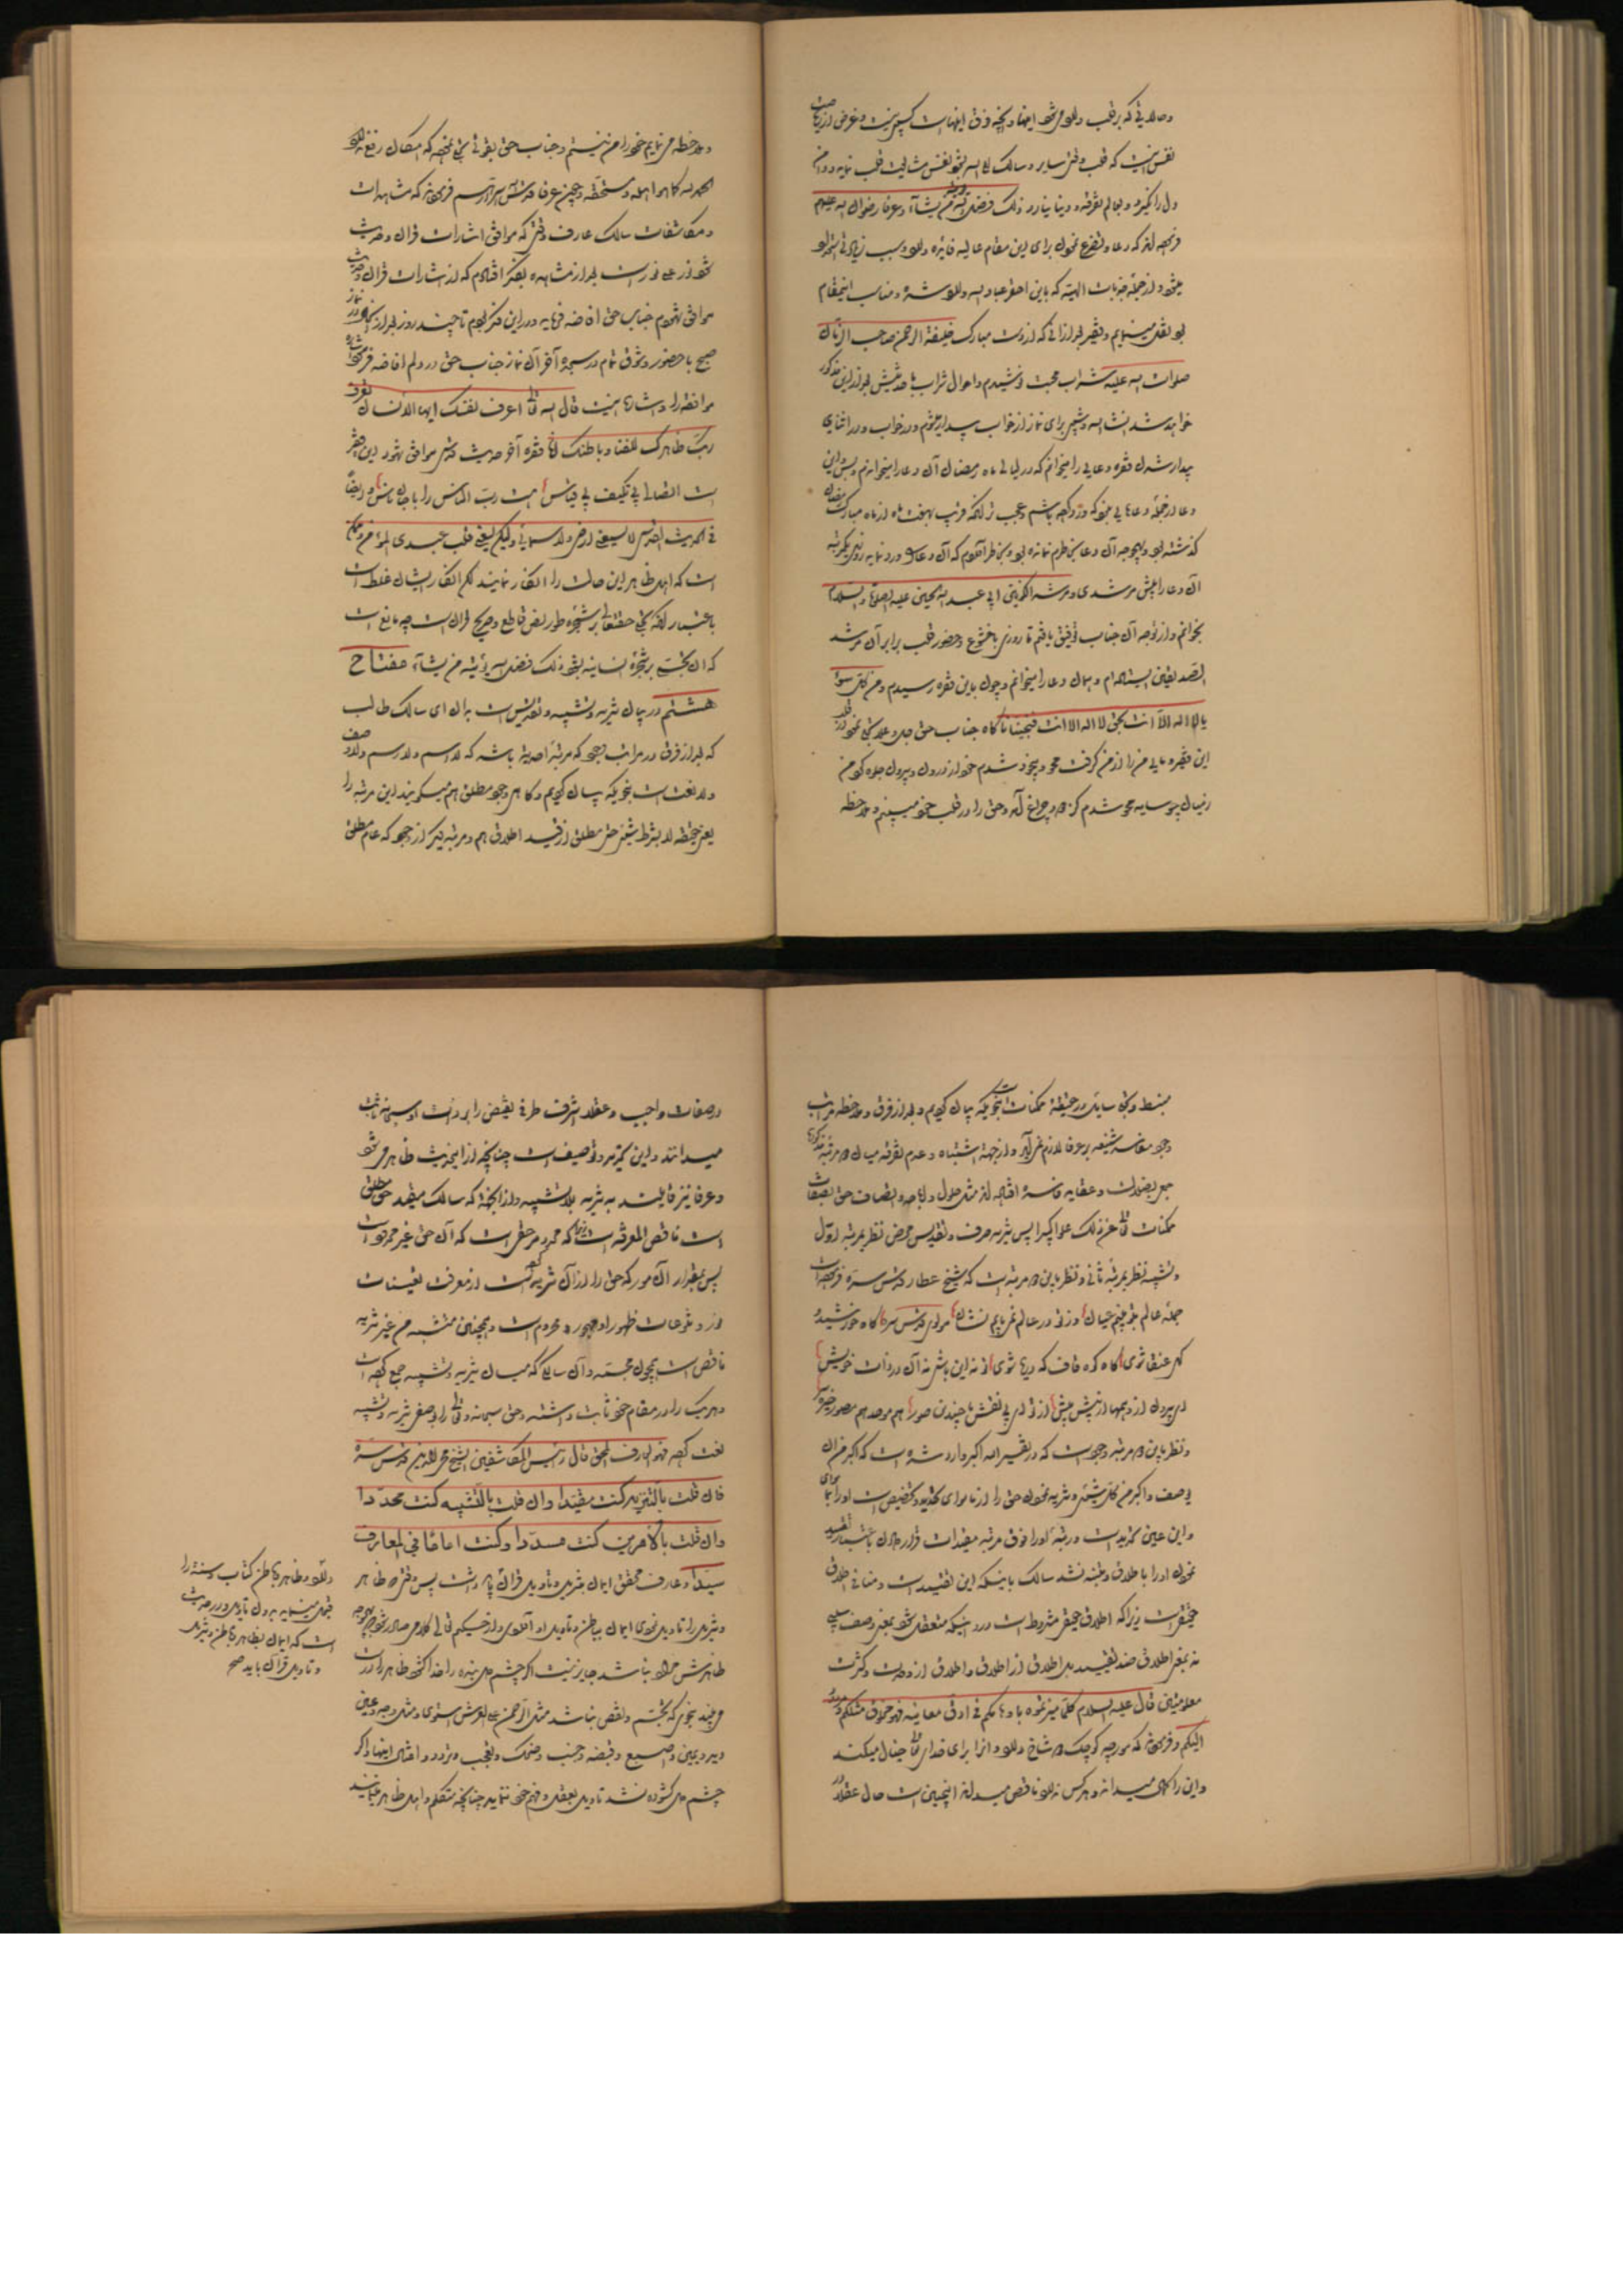 نفس نیست که قلب وقتی سایر و سالک الی الله بشود نفس مشایعت قلب نماید و دامن
دل را نگیرد و بعالم تفرقه و دنیا نیارد ذلک فضل الله یؤتیه من یشآء و عرفا رضوان الله علیهم
فرموده‌اند که دعا و تضرع نمودن برای این مقام عالیه فایده دارد و سبب زیادتی
میشود و از جمله جذبات الهیه که باین احقر عباد الله داده شده و مناسب اینمقام
بود نقل مینمایم و فقیر بعد از آنی که از دست مبارک خلیفة الرحمن صاحب الزمان
صلوات الله علیه شراب محبت نوشیدم و احوال شراب
خواهد شد انشاء الله شبی برای نماز از خواب بیدار میشوم و در خواب و در اثنای
بیدار شدن فقره دعایی را میخوانم که در لیالی ماه رمضان آن دعا را میخوانم
گذشته بود و بهیچوجه آن دعا بخاطرم نمانده بود و بخاطر آوردم که آن دعا
آن دعا را پیش مرشدی و مرشد الکونین ابی عبد الله الحسین علیه الصلوة والسلام
بخوانم و از توجه آن جناب توفیق یافتم تا روزی باخشوع و حضور قلب برابر آن مرقد
ایستاده‌ام و همان دعا را میخوانم و چون باین فقره رسیدم و من کل سوء
یا لا اله الا انت بحق لا اله الا انت فنجینا ناگاه جناب حق جل و علا تجلی نمود
این فقیر و مایی من را از من گرفت محو و بیخود شدم خود از درون و بیرون جلوه کرد من
ز میان چو سایه محو شدم و حق را در قلب خود میبینم و ملاحظه
و ملاحظه می‌نمایم خود را من نیستم و جناب حق بقوتی تجلی نموده که امکان رفع ندارد
الحمد لله کما هو اهله و مستحقه و چون عرفا قدس الله اسرارهم فرموده‌اند که مشاهدات
و مکاشفات سالک عارف وقتی که موافق اشارات قرآن و حدیث
شود نور علی نور است بعد از مشاهده بفکر افتادم که از اشارات قرآن و حدیث
موافق شهودم جناب حق افاضه فرماید و در این فکر بودم تا چند روز بعد از آن در نماز
صبح با حضور و شوق تمام در سجده آخر آن نماز جناب حق در دلم افاضه فرمود
موافقه را و اشاره اینست قال الله تعالی اعرف نفسک ایها الانسان تعرف
ربک ظاهرک للفنا و باطنک انا فقره آخر حدیث قدسی موافق شهود این فقیر
است اتصالی بی تکیف بی قیاس هست رب الناس را با جان ناس و ایضاً
فی الحدیث القدسی لا یسعنی ارضی ولا سمائی ولیکن یسعنی قلب عبدی المؤمن
است که اهل ظاهر این حالت را انکار نمایند لکن انکار ایشان غلط است
باعتبار آنکه تجلی حقتعالی بر شجره طور بنص قاطع و صریح قرآن است چه مانع است
که آن تجلی بر شجره انسانیه بشود ذلک فضل الله یؤتیه من یشآء مفتاح
هشتم در بیان تنزیه و تشبیه و تقدیس است بدان ای سالک طالب
که بعد از فرق در مراتب وجود که مرتبه احدیة باشد که لا اسم و لا رسم و لا وصف
و لا نعت است بنحویکه بیان کردیم و گاهی وجود مطلق هم میگویند این مرتبه را
یعنی حقیقة لا بشرط شیئی حتی مطلق از قید اطلاق هم و مرتبه دیگر از وجود که عام مطلق
منبسط و تجلی ساری در حقیقة ممکنات است بنحویکه بیان کردیم و بعد از فرق و ملاحظه مراتب
وجود مفاسد شنیعه بر عرفا لازم نمی‌آید و از جهة اشتباه و عدم تفرقه میان دو مرتبه مذکوره
جمعی بضلالت و عقاید فاسده افتاده‌اند مثل حلول و اباحه و اتصاف حق بصفات
ممکنات تعالی عن ذلک علوا کبیرا پس تنزیه صرف و تقدیس محض نظر بمرتبه اول
و تشبیه نظر بمرتبه ثانی و نظر باین دو مرتبه است که شیخ عطار قدس سره فرموده است
جمله عالم بتو بینم عیان وز تو در عالم نمی‌یابم نشان مولوی قدس سره گاه خورشید و
گهی عنقا شوی گاه کوه قاف و گه دریا شوی تو نه این باشی نه آن در ذات خویش
ای برون از وهمها از پیش پیش از تو ای بی نقش با چندین صور هم موحد هم مصور خیره سر
و نظر باین دو مرتبه وجود است که در تفسیر الله اکبر وارد شده است که اکبر من ان
یوصف و اکبر من کل شیئی و تنزیه نمودن حق را از ماسوای
و این عین تحدید است و رتبه او را فوق مرتبه مقیدات قرار دادن باعتبار تقیید
نمودن او را باطلاق و ملتفت نشد سالک باینکه این تقیید است و منافی اطلاق
حقیقی است زیرا که اطلاق حقیقی مشروط است در اینکه متعقل شود بمعنی وصف سلبی
نه بمعنی اطلاق ضد تقیید بل اطلاق از اطلاق و اطلاق از وحدت و کثرت
معلومتین قال علیه السلام کلما میزتموه باوهامکم فی ادق معانیه فهو مخلوق مثلکم مردود
الیکم و فرموده‌اند که مورچه کوچک دو شاخ دارد و آنرا برای خدای تعالی خیال میکند
و این را کمال میداند و هر کس ندارد ناقص میداند اینچنین است حال عقلاء در
در صفات واجب و عقلا اشرف طرفی نقیض را بر ذات او سبحانه ثابت
میدانند و این تنزیه و توصیف است چنانچه از این حدیث ظاهر می‌شود
و عرفا نیز قایلند به تنزیه بلا تشبیه و از اینجهة که سالک مقید حق مطلق
است ناقص المعرفه است چنانچه محدد حق است که آن حق غیر محدود است
پس بمقدار آن امور که حق را از آن تنزیه کرده است از معرفت تعینات
نور و تنوعات ظهور او مهجور و محروم است و همچنین مشبه من غیر تنزیه
ناقص است همچون مجسمه و آن سالک که میان تنزیه و تشبیه جمع کرده است
و هر یک را در مقام خود ثابت داشته و حق سبحانه و تعالی را بوصفی تنزیه و تشبیه
نعت کرده فهو العارف المحق قال رئیس المکاشفین الشیخ محی الدین قدس سره
فان قلت بالتنزیه کنت مقیدا وان قلت بالتشبیه کنت محددا
وان قلت بالامرین کنت مسددا وکنت اماما فی المعارف
سیدا و عارف محقق ایمان بتنزیل و تأویل قرآن باید داشت پس وقتی که ظاهر
و تنزیل را تأویل نمودی ایمان بباطن و تأویل او آوردی و از حکیم تعالی کلامی صادر شود که بهیچوجه
ظاهرش مراد نباشد جایز نیست اگر چشم دل بنده را خدا گشود ظاهر را درست
می‌بیند بنحوی که تجسم و نقص نباشد مثل الرحمن علی العرش استوی و مثل وجه و عین
و ید و یمین و اصبع و قبضه و جنب و ضحک و تعجب و تردد و امثال اینها و اگر
چشم دل گشوده نشد تأویل بعقل و فهم خود ننماید چنانچه متکلم و اهل ظاهر مینمایند
و ظاهر و باطن کتاب و سنة را
قبول مینماید بدون تأویل و در حدیث
است که ایمان بظاهر و باطن و تنزیل
و تأویل قرآن باید صح